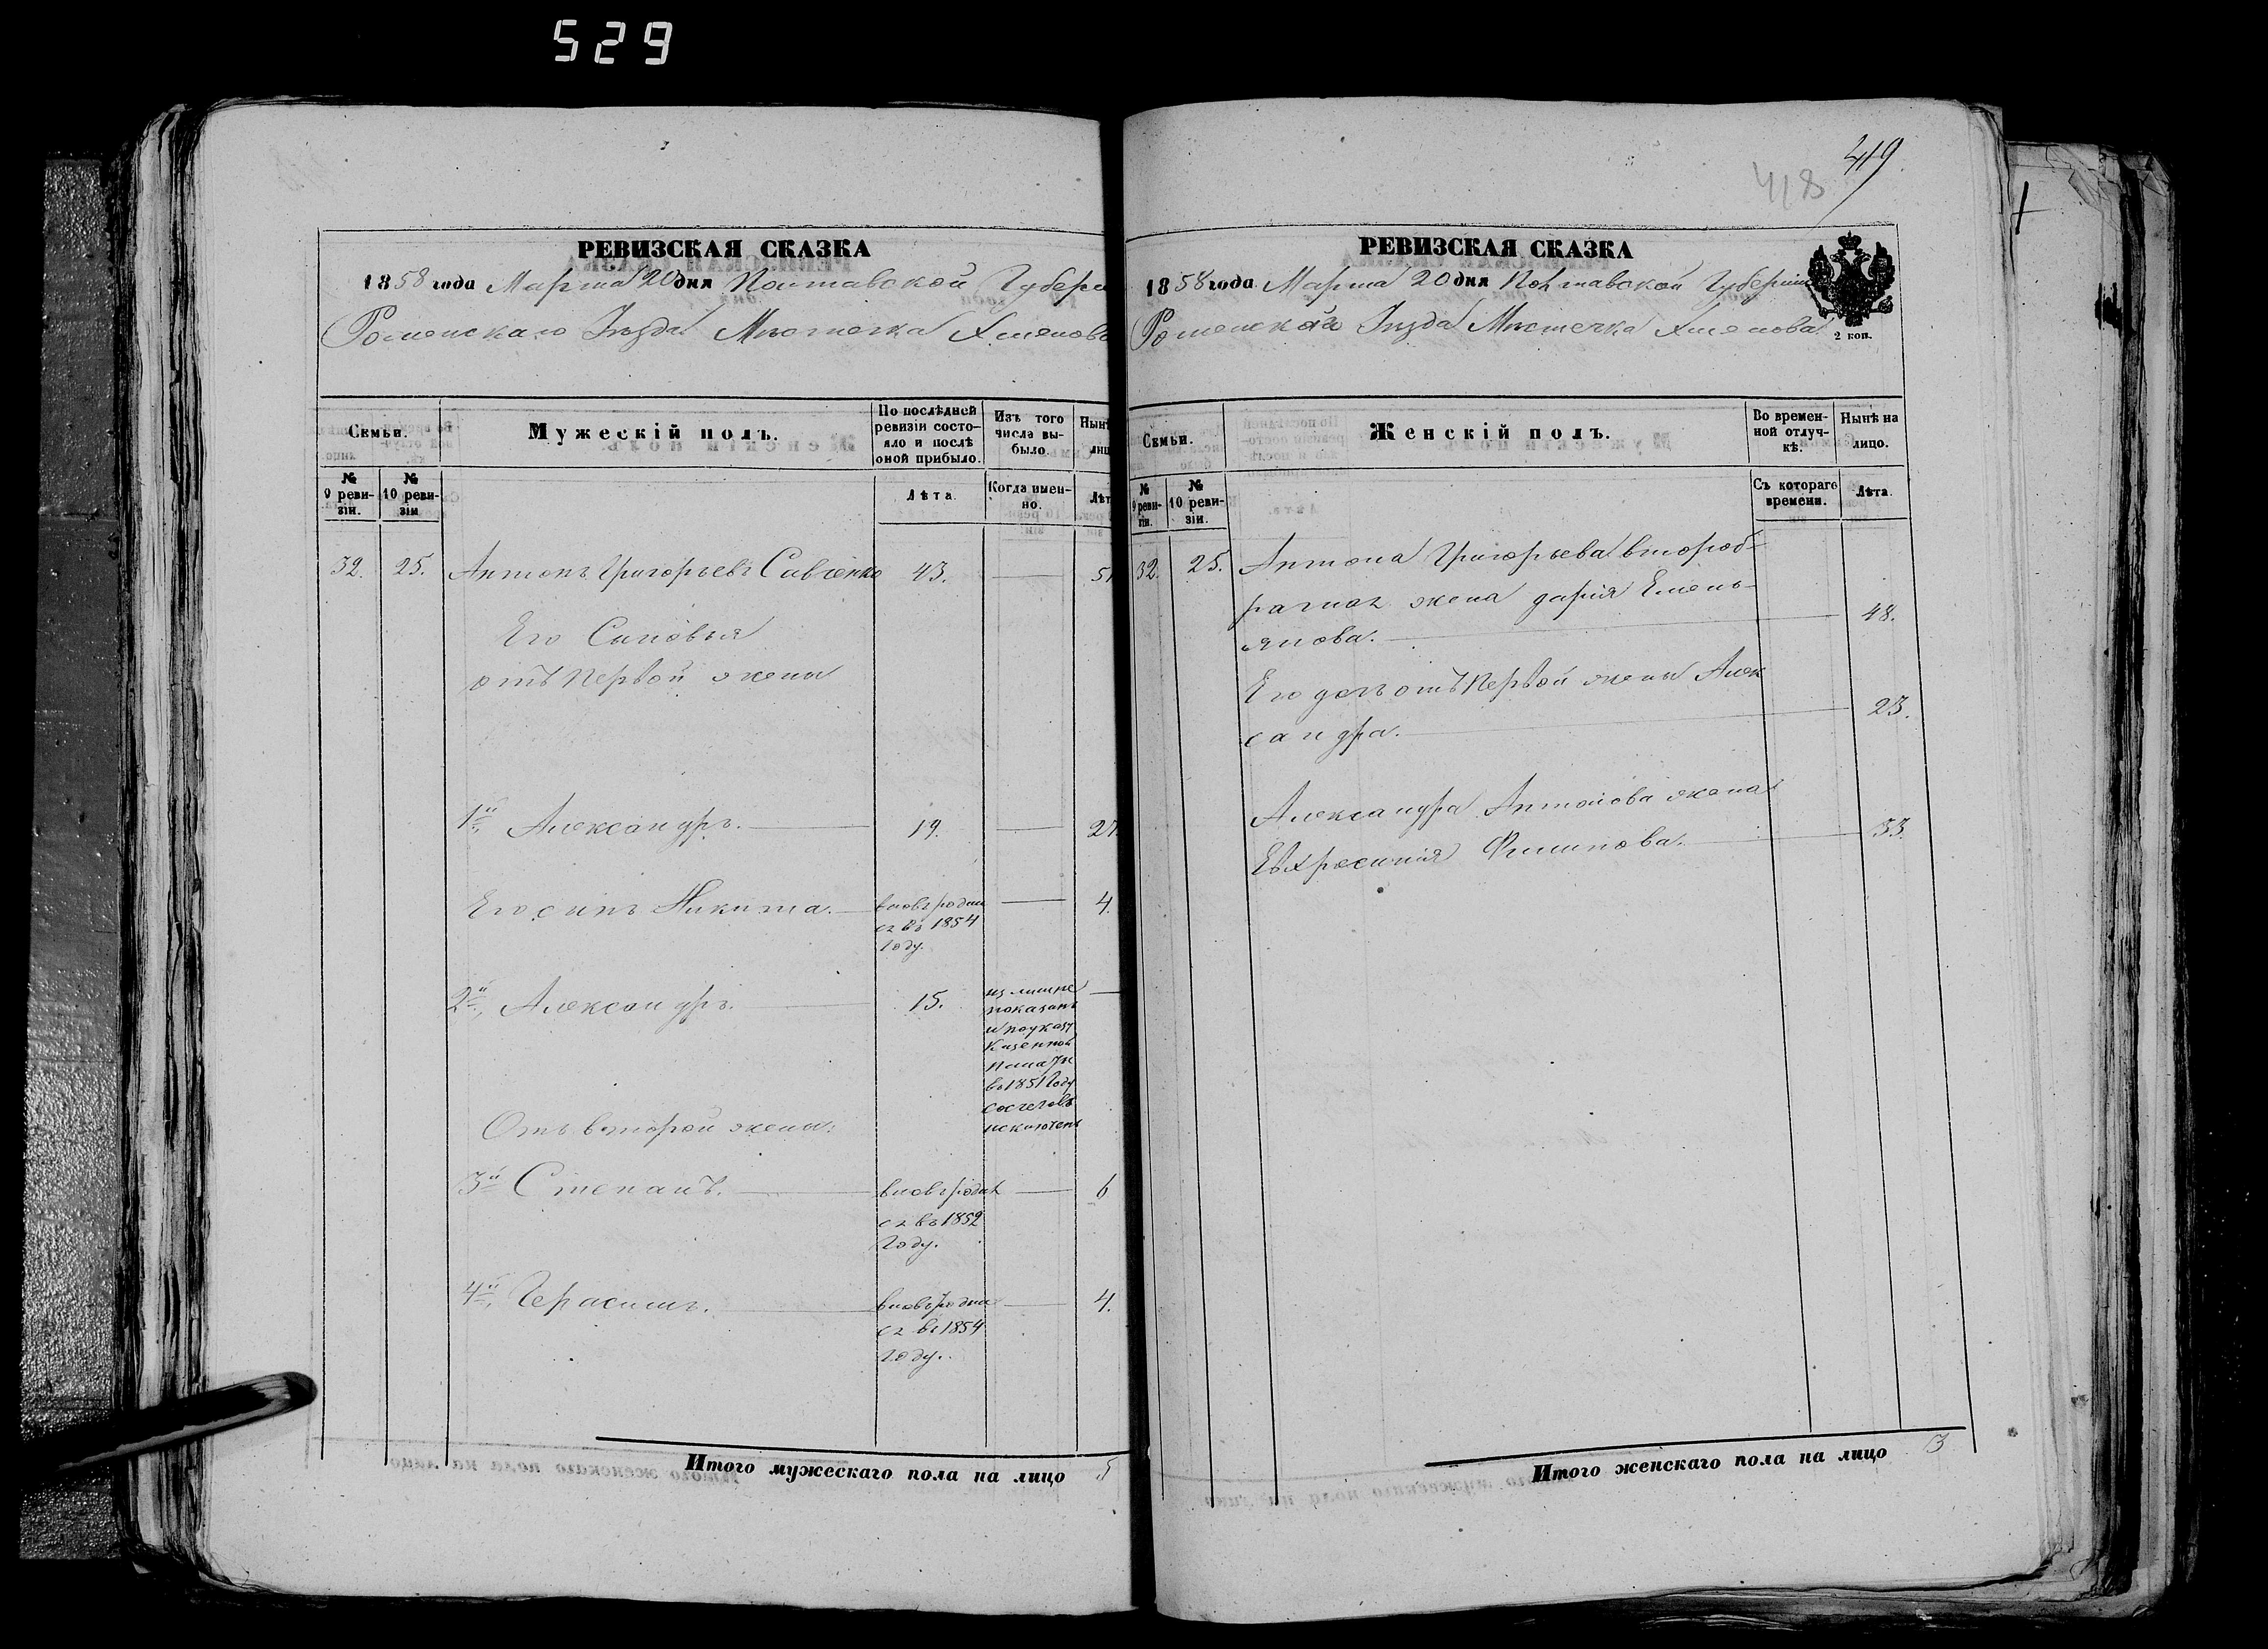 529
РЕВИЗСКАЯ СКАЗКА
1858 года Марта 20 дня Полтавской Губерн
Роменскаго Уезда Местечка Хмелова
Семьи.
Мужескій полъ.
По послѣдней ревизіи состояло и послѣ оной прибыло.
Изъ того числа выбыло.
Нынѣ
лиц
№ 9 ревизіи.
№ 10 ревизіи
Лѣта
Когда именно.
Лѣт
32. 25. Антонъ Григорьевъ Савченко 43. 51
Его Сыновья
отъ Первой жены
1й Александръ. 19. 27.
Его сынъ Никита. вновь родил
ся въ 1854
году. 4.
2й, Александръ. 15. излишне
показанъ
и по указу
Казенной
Палаты
въ 1851 Году
исключенъ
Отъ второй жены.
3й Степанъ. вновь родил
ся въ 1852
Году. 6
4й, Герасимъ. вновь родил
ся въ 1854
Году. 4.
Итого мужескаго пола на лицо 5
419
418
РЕВИЗСКАЯ СКАЗКА
1858 года Марта 20 дня Полтавской Губерніи
Роменскаго Уезда Местечка Хмелова
2 коп.
Семьи.
Женскій полъ.
Во временной отлучкѣ.
Нынѣ на лицо.
№ 9 ревизіи.
№ 10 ревизіи.
Съ котораго времени.
Лѣта.
32. 25. Антона Григорьева второб-
рачная жена Дарія Емель-
янова. 48.
Его дочь отъ Первой жены Алек
сандра. 23.
Александра Антонова жена
Евхросинія Филипова. 33.
Итого женскаго пола на лицо 3